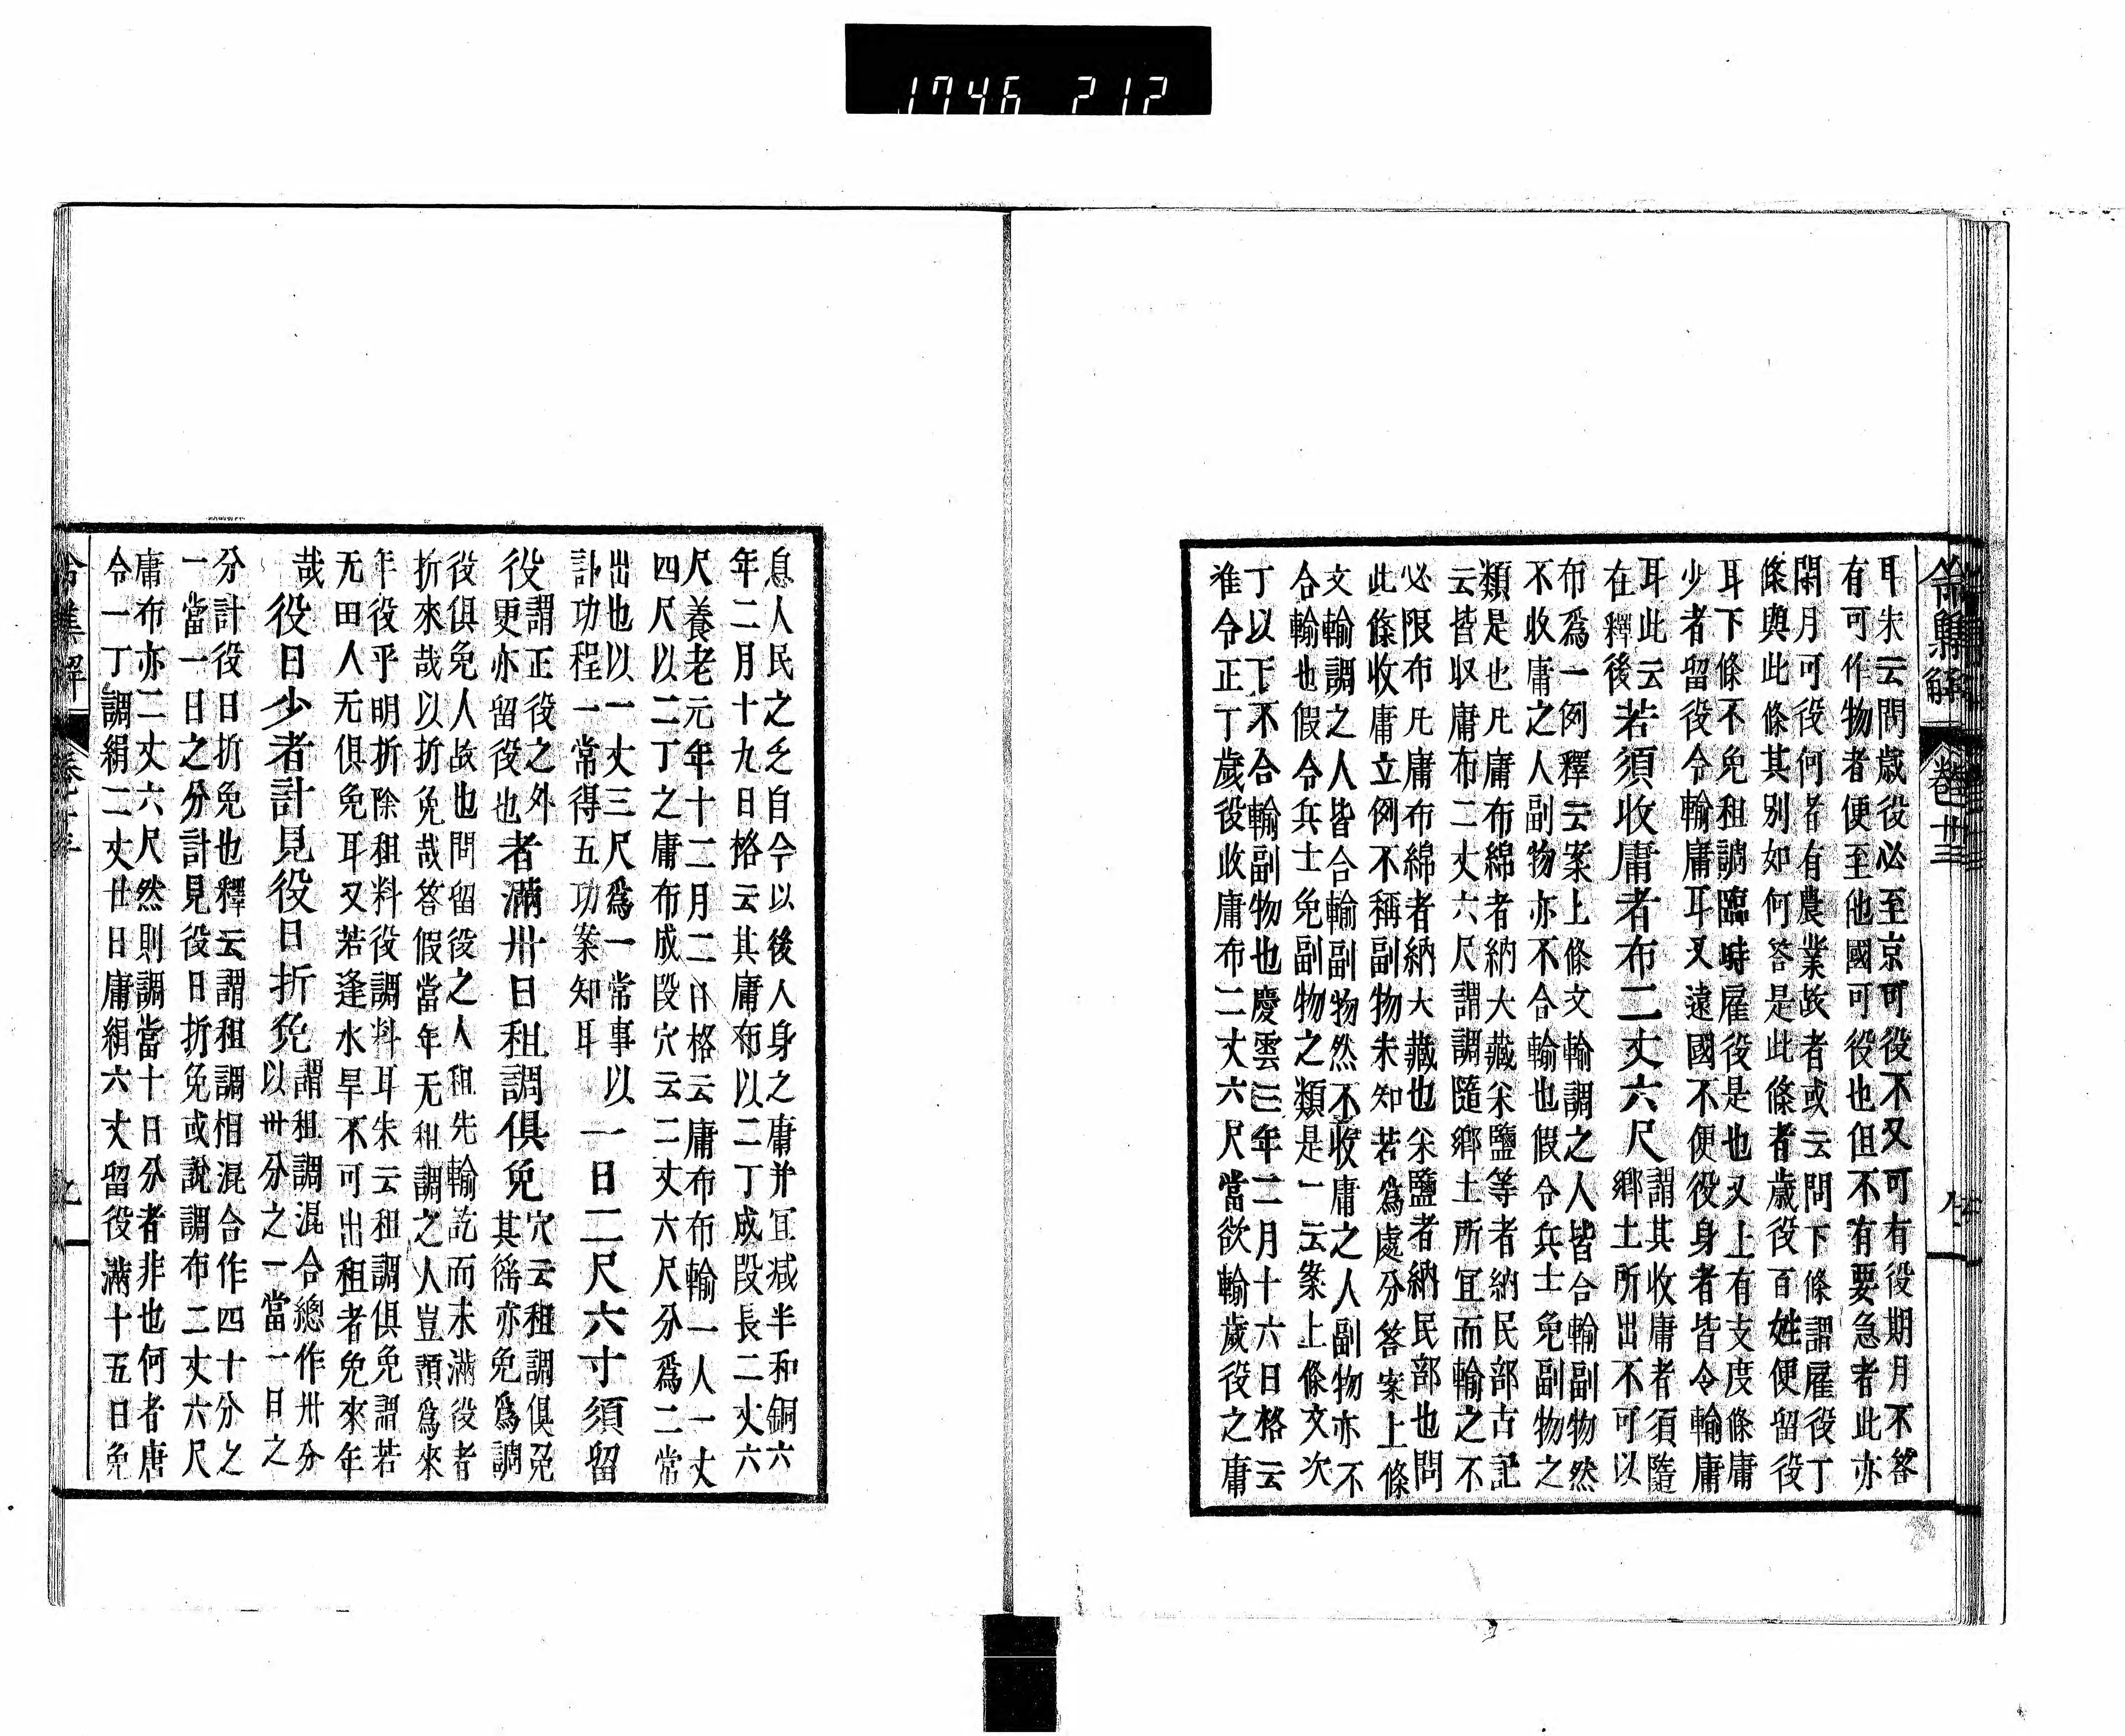 令集解 卷十三 八
耳朱云問歳役必至京可役不又可有役期月不答
有可作物者便至他國可役也但不有要急者此亦
閑月可役何者有農業故者或云問下條謂雇役丁
條與此條其別如何答是此條者歳役百姓便留役
耳下條不免租調臨時雇役是也又上有支度條庸
少者留役令輸庸耳又遠國不便役身者皆令輸庸
耳此云
在釋後
若須收庸者布二丈六尺
謂其收庸者須隨
鄉土所出不可以
布爲一例釋云案上條文輸調之人皆合輸副物然
不收庸之人副物亦不合輸也假令兵士免副物之
類是也凡庸布綿者納大藏米鹽等者納民部古記
云皆収庸布二丈六尺謂調隨鄉土所宜而輸之不
必限布凡庸布綿者納大藏也米鹽者納民部也問
此條收庸立例不稱副物未知若爲處分答案上條
文輸調之人皆合輸副物然不收庸之人副物亦不
合輸也假令兵士免副物之類是一云案上條文次
丁以下不合輸副物也慶雲三年二月十六日格云
准令正丁歳役收庸布二丈六尺當欲輸歳役之庸
息人民之乏自今以後人身之庸并宜减半和銅六
年二月十九日格云其庸布以二丁成段長二丈六
尺養老元年十二月二日格云庸布布輸一人一丈
四尺以二丁之庸布成段穴云二丈六尺分爲二常
出也以一丈三尺爲一常事以
訃功程一常得五功案知耳
一日二尺六寸須留
役
謂正役之外
更亦留役也
者滿卅日租調俱免
穴云租調俱免
其徭亦免爲調
役俱免人故也問留役之人租先輸訖而未滿役者
折來哉以折免哉答假當年无租調之人豈預爲來
年役乎明折除租料役調料耳朱云租調俱免謂若
无田人无俱免耳又若逢水旱不可出租者免來年
哉
役日少者計見役日折免
謂租調混合總作卅分
以卅分之一當一日之
分計役日折免也釋云謂租調相混合作四十分之
一當一日之分計見役日折免或說調布二丈六尺
庸布亦二丈六尺然則調當十日分者非也何者唐
令一丁調絹二丈廿日庸絹六丈留役滿十五日免
令集解 九